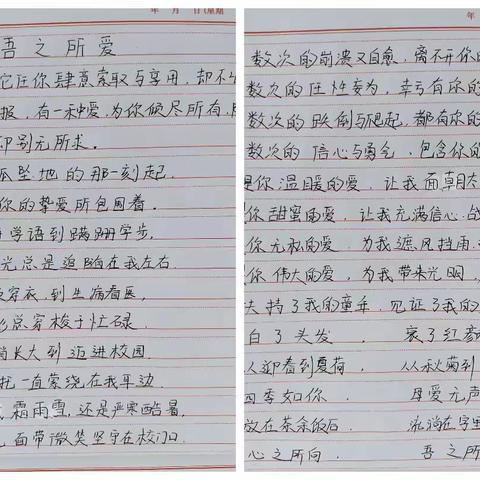 年 月 日(星期
吾之所爱
它任你肆意索取与享用,却不
报,有一种爱,为你倾尽所有,
却别无所求。
呱坠地的那一刻起,
你的挚爱所包围着.
学语到蹒跚学步,
光总是追随在我左右.
穿衣,到生病看医,
总穿梭于忙碌.
长大到迈进校园
一直萦绕在我耳边.
霜雨雪,还是严寒酷暑,
面带微笑坚守在校门口.
年
数次的崩溃又自愈,离不开你
数次的任性妄为,幸亏有你的
数次的跌倒与爬起,都有你的
数次的信心与勇气,包含你的
是你温暖的爱,让我面朝大
你甜蜜的爱,让我充满信心.
你无私的爱.为我遮风挡雨.
你伟大的爱,为我带来光明,
夫持了我的童年,见证了我的
白了头发. 衰了红颜
从迎春到夏荷. 从秋菊到
四季如你. 母爱无声
放在茶余饭后. 流淌在字里
心之所向. 吾之所